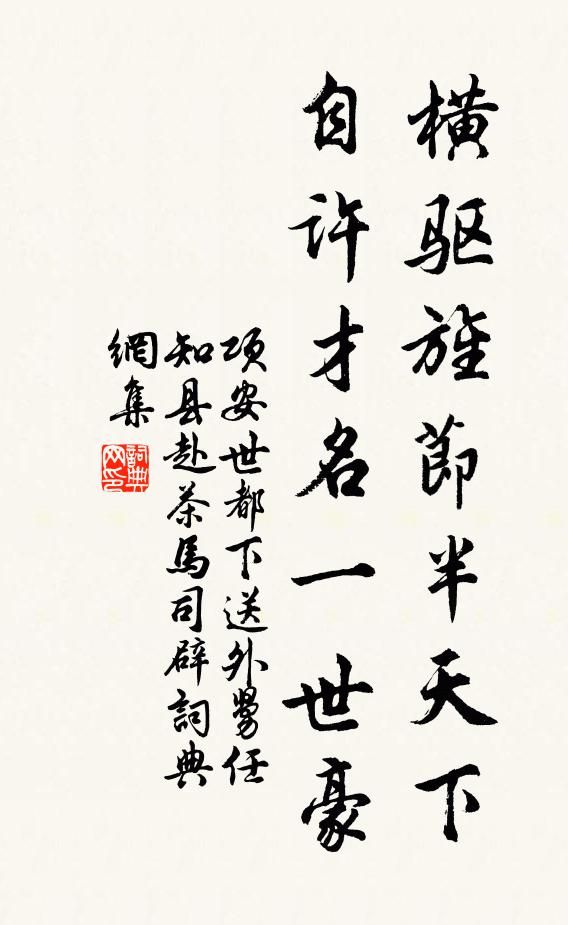 横驱旌節半天下
自许才名一世豪
项安世都下送外舅任
知县赴茶馬司辟詞典
網集
詞典网印